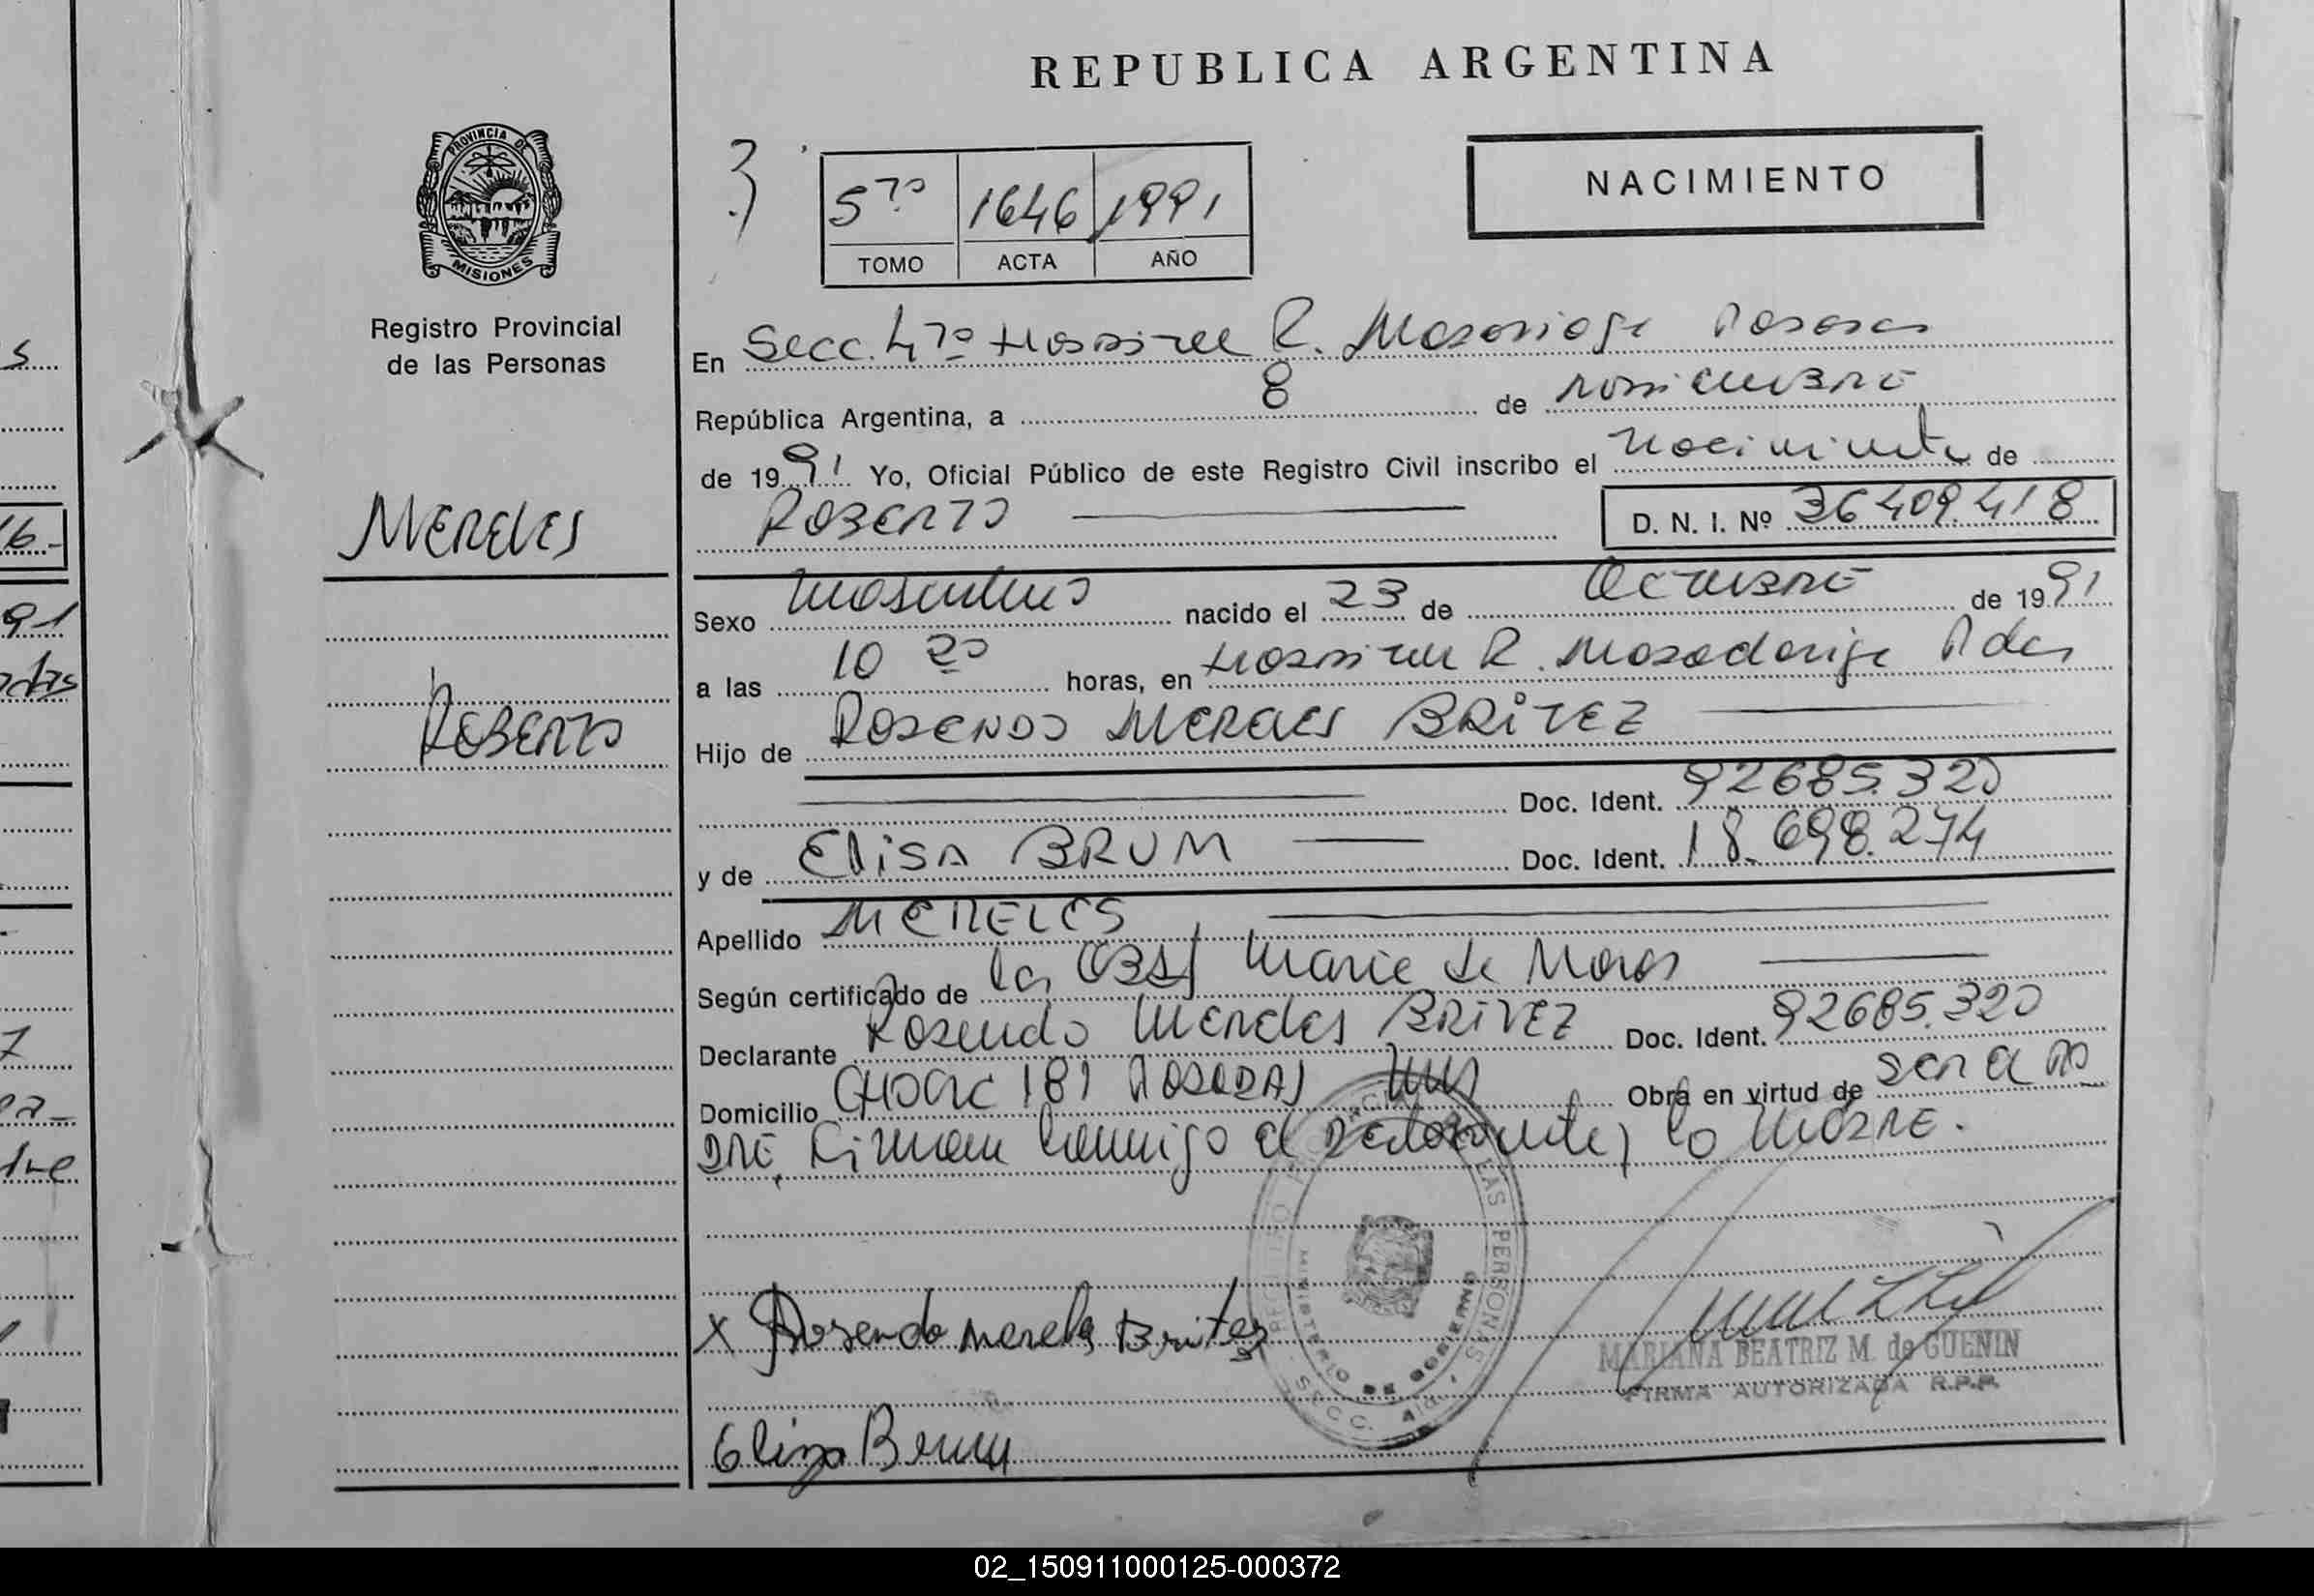 REPUBLICA ARGENTINA
PROVINCIA DE MISIONES
Registro Provincial
de las Personas
NACIMIENTO
5to 1646 1991
TOMO ACTA AÑO
En Secc. 4to Hospital R. Madariaga Posadas
República Argentina, a 8 de noviembre
de 1991 Yo, Oficial Público de este Registro Civil inscribo el nacimiento de
ROBERTO
D. N. I. Nº 36409.418
MERELES
ROBERTO
Sexo masculino nacido el 23 de Octubre de 1991
a las 10 20 horas, en Hospital R. Madariaga Pdas
Hijo de ROSENDO MERELES BRITEZ
Doc. Ident. 92685.320
y de ELISA BRUM Doc. Ident. 18.698.274
Apellido MERELES
Según certificado de la Obst Maria de
Declarante Rosendo Mereles BRITEZ Doc. Ident. 92685.320
Domicilio 181 POSADAS Mnes Obra en virtud de ser el pa
dre, Firman conmigo el Declarante y la MADRE.
REGISTRO PROVINCIAL DE LAS PERSONAS
MINISTERIO DE GOBIERNO
SECC. 4ta.
X Rosendo mereles Britez
Eliza Brum
MARIANA BEATRIZ M. de GUENIN
FIRMA AUTORIZADA R.P.P.
02_150911000125-000372